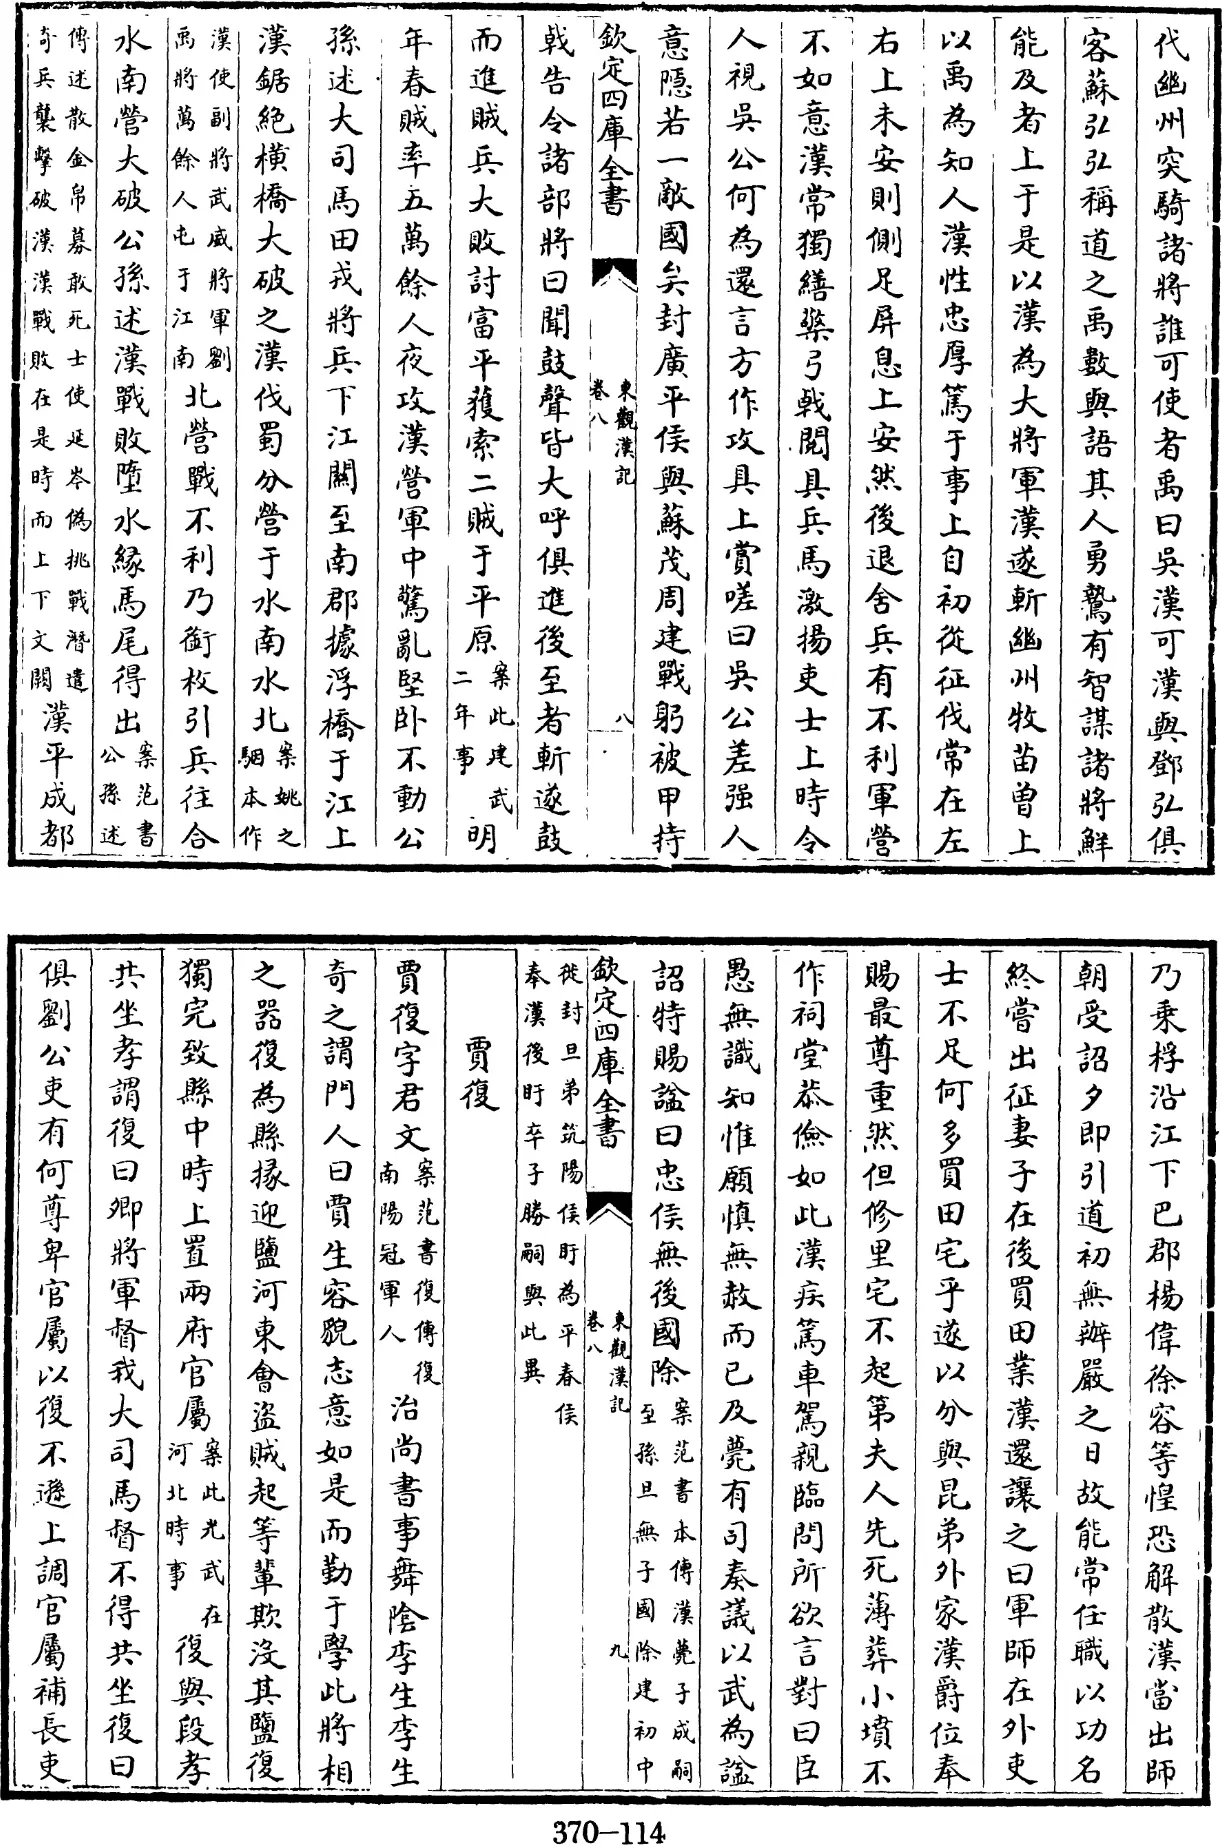 代幽州突騎諸將誰可使者禹曰吳漢可漢與鄧弘俱
客蘇弘弘稱道之禹數與語其人勇鷙有智謀諸將鮮
能及者上于是以漢為大將軍漢遂斬幽州牧苗曾上
以禹為知人漢性忠厚篤于事上自初從征伐常在左
右上未安則側足屏息上安然後退舍兵有不利軍營
不如意漢常獨繕檠弓戟閱具兵馬激揚吏士上時令
人視吳公何為還言方作攻具上賞嗟曰吳公差强人
意隱若一敵國矣封廣平侯與蘇茂周建戰躬被甲持
欽定四庫全書
東觀漢記
卷八
八
戟告令諸部將曰聞鼓聲皆大呼俱進後至者斬遂鼓
而進賊兵大敗討富平獲索二賊于平原案此建武二年事明
年春賊率五萬餘人夜攻漢營軍中驚亂堅卧不動公
孫述大司馬田戎將兵下江關至南郡據浮橋于江上
漢鋸絶橫橋大破之漢伐蜀分營于水南水北案姚之駰本作
漢使副將武威將軍劉禹將萬餘人屯于江南北營戰不利乃銜枚引兵往合
水南營大破公孫述漢戰敗墮水緣馬尾得出案范書公孫述
傳述散金帛募敢死士使延岑偽挑戰潛遣奇兵襲擊破漢漢戰敗在是時而上下文闕漢平成都
乃乘桴沿江下巴郡楊偉徐容等惶恐解散漢當出師
朝受詔夕即引道初無辦嚴之日故能常任職以功名
終嘗出征妻子在後買田業漢還讓之曰軍師在外吏
士不足何多買田宅乎遂以分與昆弟外家漢爵位奉
賜最尊重然但修里宅不起第夫人先死薄葬小墳不
作祠堂恭儉如此漢疾篤車駕親臨問所欲言對曰臣
愚無識知惟願慎無赦而已及薨有司奏議以武為諡
詔特賜諡曰忠侯無後國除案范書本傳漢薨子成嗣至孫旦無子國除建初中
欽定四庫全書
東觀漢記
卷八
九
徙封旦弟筑陽侯盱為平春侯奉漢後盱卒子勝嗣與此異
賈復
賈復字君文案范書復傳復南陽冠軍人治尚書事舞陰李生李生
奇之謂門人曰賈生容貌志意如是而勤于學此將相
之器復為縣掾迎鹽河東會盜賊起等輩欺沒其鹽復
獨完致縣中時上置兩府官屬案此光武在河北時事復與段孝
共坐孝謂復曰卿將軍督我大司馬督不得共坐復曰
俱劉公吏有何尊卑官屬以復不遜上調官屬補長吏
370-114